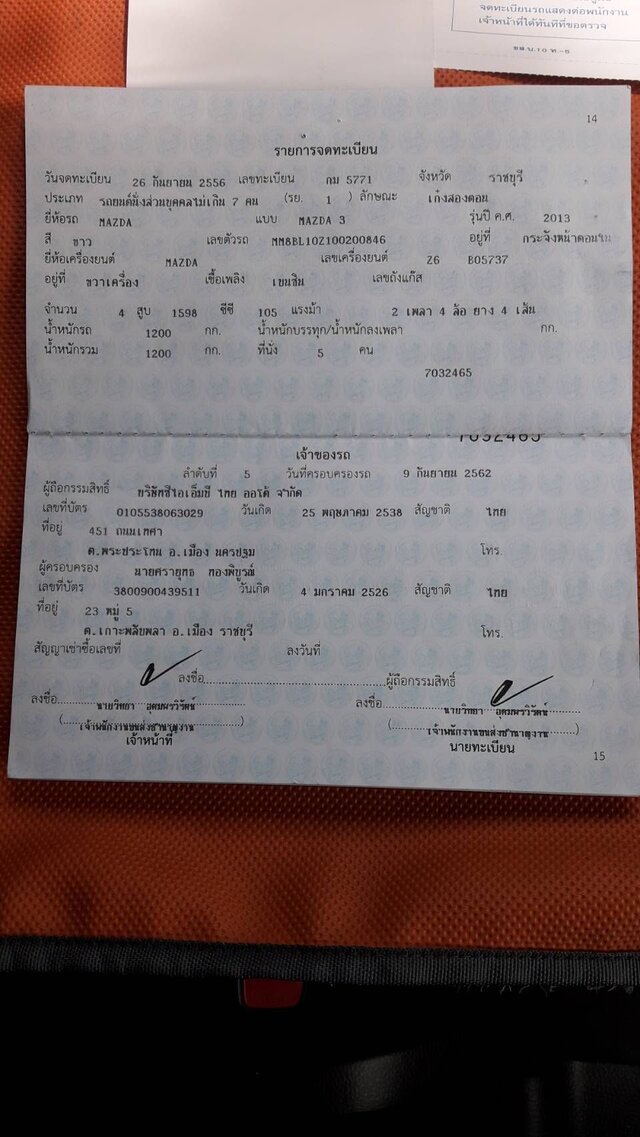 จดทะเบียนรถแสดงต่อพนักงาน
เจ้าหน้าที่ได้ทันทีที่ขอตรวจ
14
รายการจดทะเบียน
วันจดทะเบียน 26 กันยายน 2556 เลขทะเบียน กม 5771 จังหวัด ราชบุรี
ประเภท รถยนต์นั่งส่วนบุคคลไม่เกิน 7 คน (รย. 1 ) ลักษณะ เก๋งสองตอน
ยี่ห้อรถ MAZDA แบบ MAZDA 3 รุ่นปี ค.ศ. 2013
สี ขาว เลขตัวรถ MM8BL10Z100200846 อยู่ที่ กระจังหน้าตอนใน
ยี่ห้อเครื่องยนต์ MAZDA เลขเครื่องยนต์ Z6 B05737
อยู่ที่ ขวาเครื่อง เชื้อเพลิง เบนซิน เลขถังแก๊ส
จำนวน 4 สูบ 1598 ซีซี 105 แรงม้า 2 เพลา 4 ล้อ ยาง 4 เส้น
น้ำหนักรถ 1200 กก. น้ำหนักบรรทุก/น้ำหนักลงเพลา กก.
น้ำหนักรวม 1200 กก. ที่นั่ง 5 คน
7032465
7032465
เจ้าของรถ
ลำดับที่ 5 วันที่ครอบครองรถ 9 กันยายน 2562
ผู้ถือกรรมสิทธิ์ บริษัทซีไอเอ็มบี ไทย ออโต้ จำกัด
เลขที่บัตร 0105538063029 วันเกิด 25 พฤษภาคม 2538 สัญชาติ ไทย
ที่อยู่ 451 ถนนเทศา
ต.พระประโทน อ.เมือง นครปฐม โทร.
ผู้ครอบครอง นายศรายุทธ ทองพิบูรณ์
เลขที่บัตร 3800900439511 วันเกิด 4 มกราคม 2526 สัญชาติ ไทย
ที่อยู่ 23 หมู่ 5
ต.เกาะพลับพลา อ.เมือง ราชบุรี โทร.
สัญญาเช่าซื้อเลขที่ ลงวันที่
ลงชื่อ ผู้ถือกรรมสิทธิ์
ลงชื่อ นายวิทยา อุดมพรวิรัตน์ ลงชื่อ นายวิทยา อุดมพรวิรัตน์
( เจ้าพนักงานขนส่งชำนาญงาน ) ( เจ้าพนักงานขนส่งชำนาญงาน )
เจ้าหน้าที่ นายทะเบียน
15